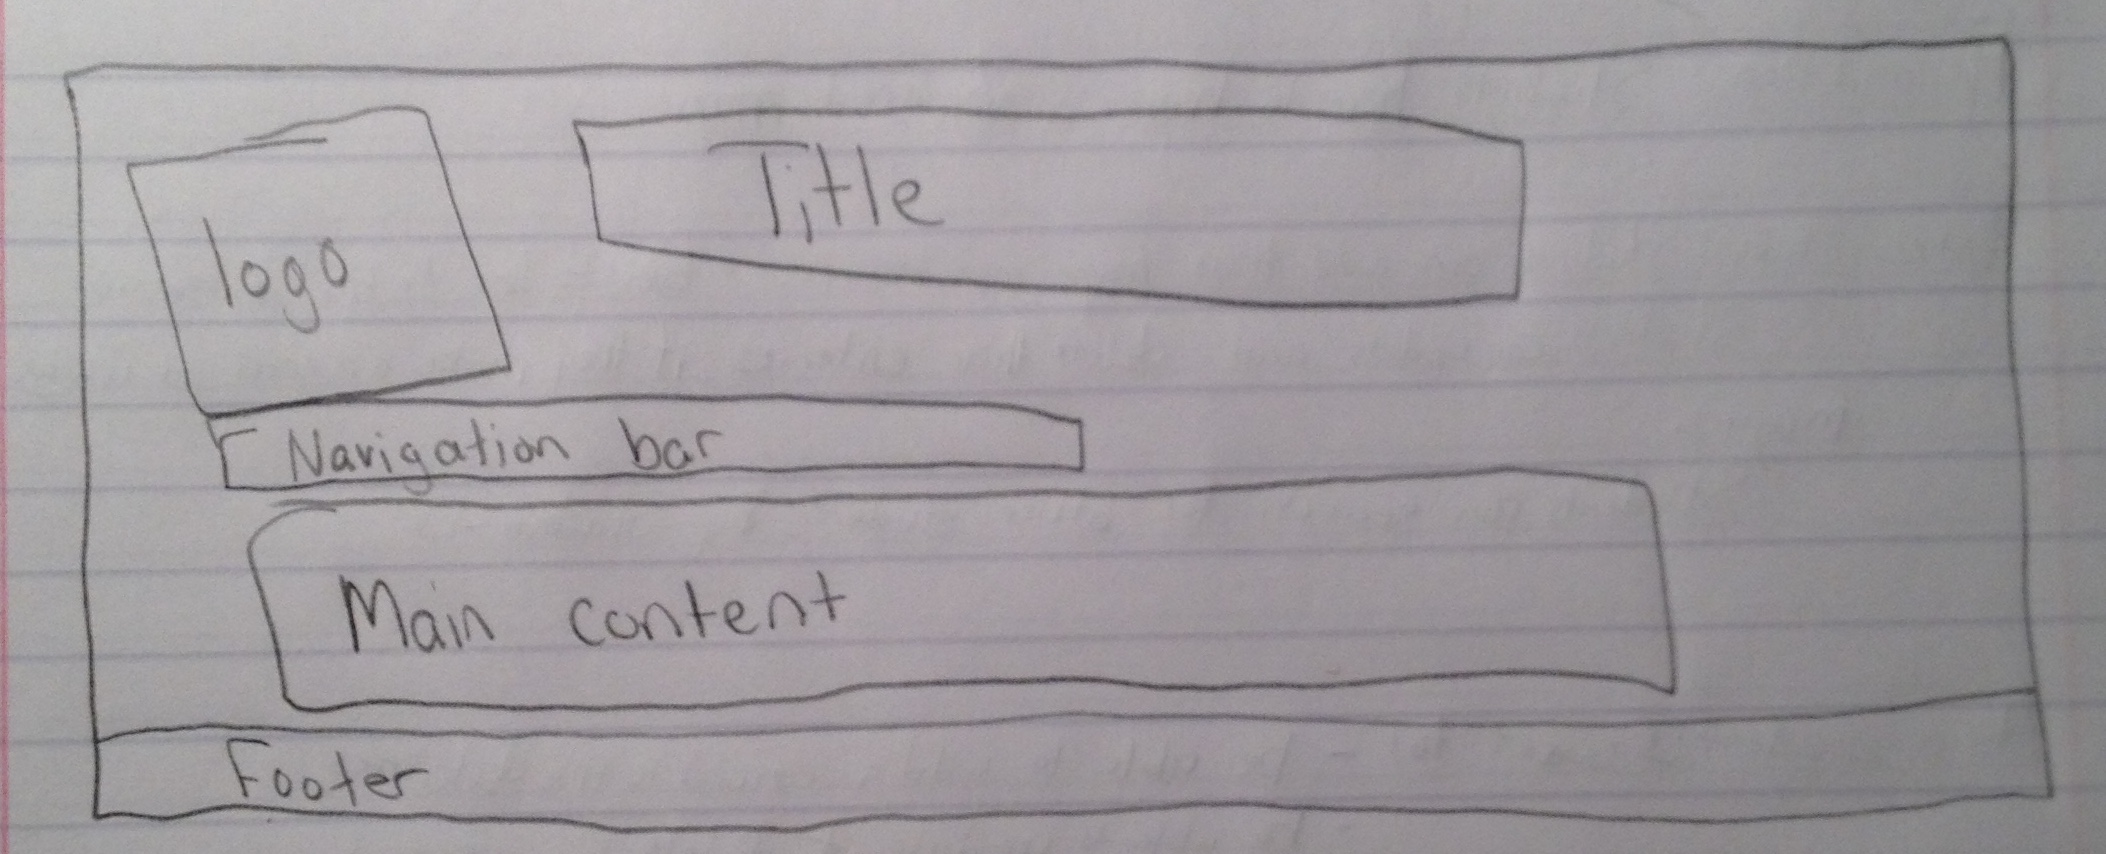 logo
Title
Navigation bar
Main content
Footer